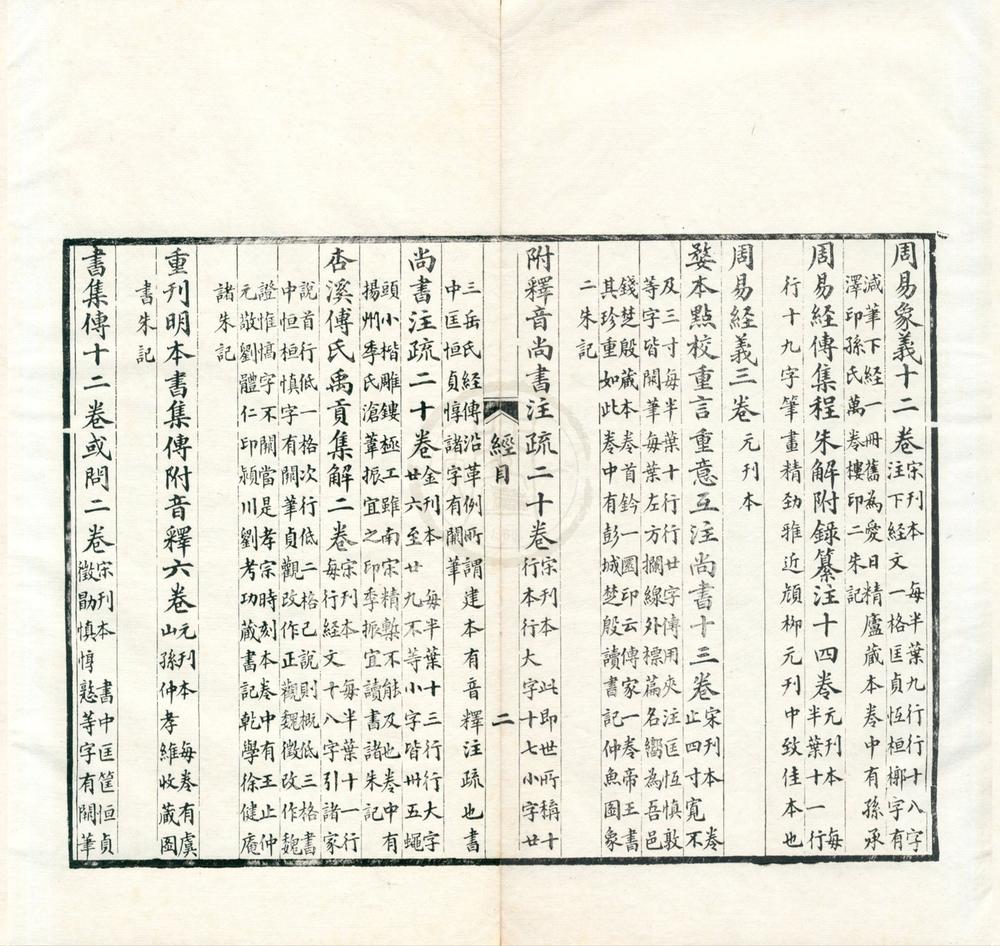 周易象義十二卷 宋刊本 每半葉九行行十八字
注下經文一格匡貞恆桓槨字有
減筆下經一冊舊為愛日精廬藏本卷中有孫承
澤印孫氏萬卷樓印二朱記
周易經傳集程朱解附錄纂注十四卷 元刊本 每
半葉十一行
行十九字筆畫精勁雅近顏柳元刊中致佳本也
周易經義三卷 元刊本
婺本點校重言重意互注尚書十三卷 宋刊本寬卷
止四寸七不
及三寸每半葉十行行廿字傳用夾注匡恆慎敦
等字皆闕筆每葉左方攔線外標篇名嚮為吾邑
錢楚殷藏本卷首鈐一圜印云傳家一卷帝王書
其珍重如此卷中有彭城楚殷讀書記仲魚圖象
二朱記
附釋音尚書注疏二十卷 宋刊本 此即世所稱十
行本行大字十七小字廿
經目
二
三岳氏經傳沿革例所謂建本有音釋注疏也書
中匡恒貞惇諸字有闕筆
尚書注疏二十卷 金刊本 每半葉十三行行大字
廿六至廿九不等小字皆卅五蠅
頭小楷雕鏤極工雖南宋精槧不能及也卷中有
揚州季氏滄葦振宜之印季振宜讀書諸朱記
杏溪傅氏禹貢集解二卷 宋刊本每半葉十一行
每行經文十八字引諸家
說首行低一格次行低二格己說則概低三格書
中恒桓慎字有闕筆貞觀改作正觀魏徵改作魏
證惟惇字不闕當是孝宗時刻本卷中有王止仲
元敬劉體仁印潁川劉考功藏書記乾學徐健庵
諸朱記
重刊明本書集傳附音釋六卷 元刊本 每卷有虞
山孫仲孝維收藏圖
書朱記
書集傳十二卷或問二卷 宋刊本 書中匡筐恒貞
徵勗慎惇慤等字有闕筆